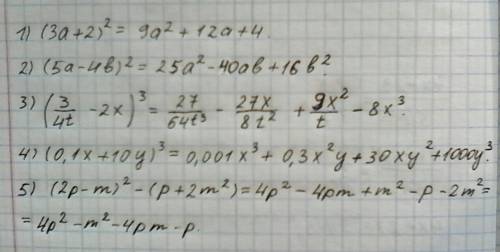 1) (3a+2)² = 9a² + 12a + 4.
2) (5a-4в)² = 25a² - 40aв + 16в².
3) (3/4t - 2x)³ = 27/64t³ - 27x/8t² + 9x²/t - 8x³.
4) (0,1x+10y)³ = 0,001x³ + 0,3x²y + 30xy² + 1000y³.
5) (2p-m)² - (p+2m²) = 4p² - 4pm + m² - p - 2m² =
= 4p² - m² - 4pm - p.